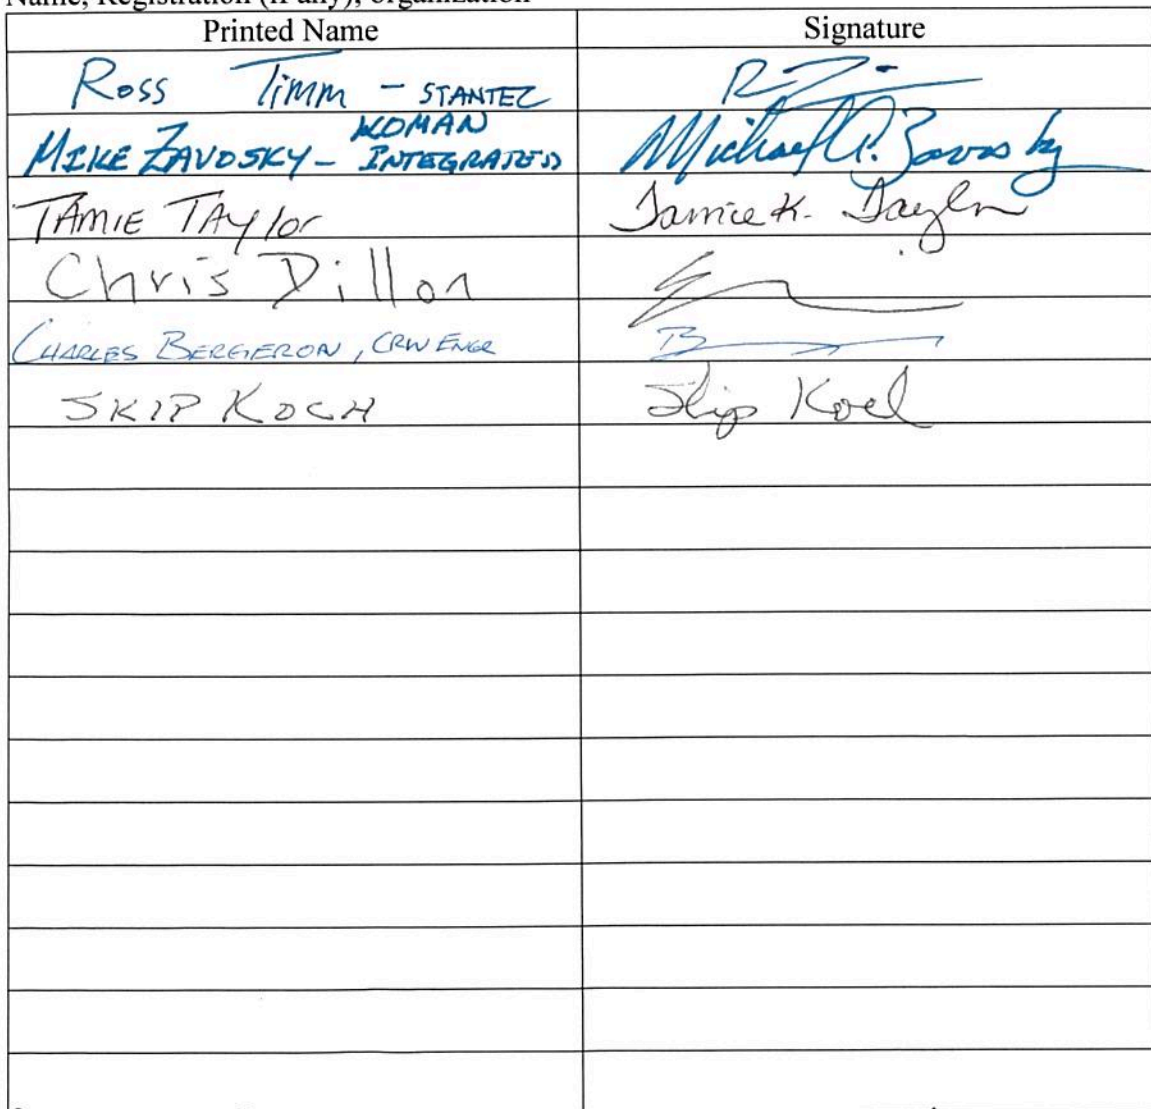 Name, Registration (if any), organization
Printed Name Signature
Ross Timm - STANTEC
KOMAN
MIKE ZAVOSKY - INTEGRATED Michael P. Zavosky
TAMIE TAYlor Tamie K. Taylor
Chris Dillon
CHARLES BERGERON, CRW ENGR
SKIP KOCH Skip Koch